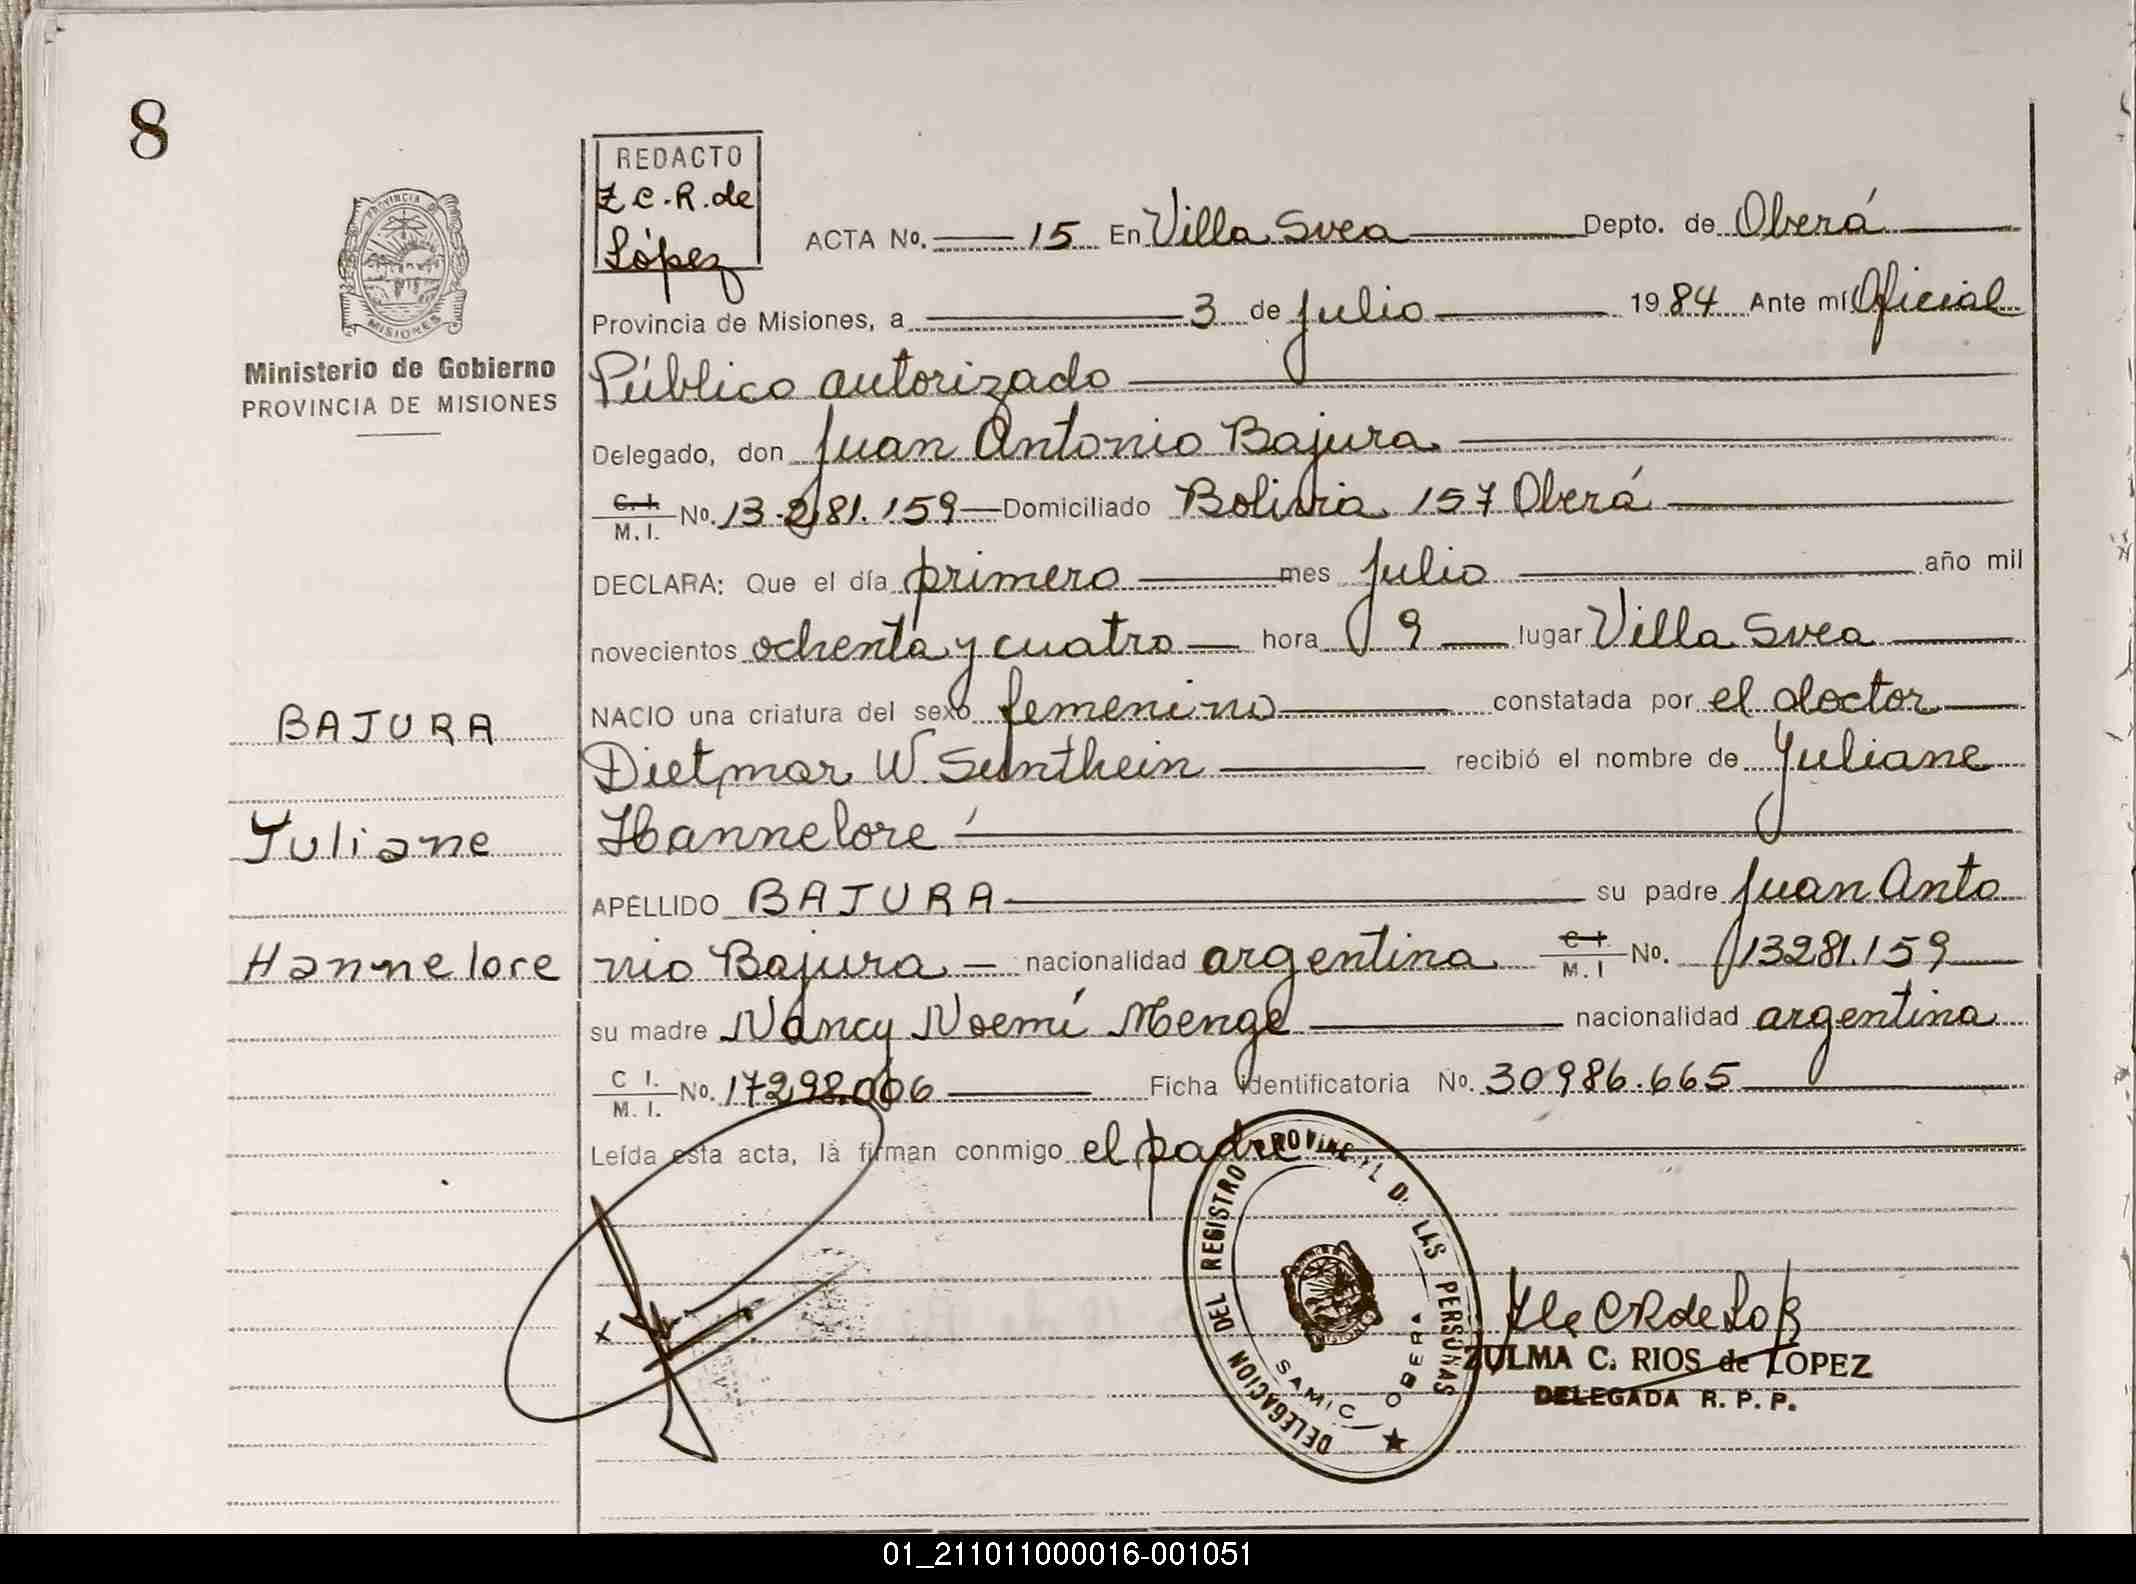 8
REDACTO
Z.C.R.de
López
PROVINCIA DE
MISIONES
Ministerio de Gobierno
PROVINCIA DE MISIONES
ACTA No. 15 En Villa Svea Depto. de Oberá
Provincia de Misiones, a 3 de julio 1984 Ante mí Oficial
Público autorizado
Delegado, don Juan Antonio Bajura
C.I. M.I. No. 13.281.159 Domiciliado Bolivia 157 Oberá
DECLARA: Que el día primero mes julio año mil
novecientos ochenta y cuatro hora 9 lugar Villa Svea
NACIO una criatura del sexo femenino constatada por el doctor
Dietmar W. Sunthein recibió el nombre de Yuliane
Hannelore
APELLIDO BAJURA su padre Juan Anto
nio Bajura nacionalidad argentina C.I. M.I No. 13281.159
su madre Nancy Noemí Menge nacionalidad argentina
C I. M.I. No. 17298.006 Ficha identificatoria No. 30986.665
Leída esta acta, la firman conmigo el padre
BAJURA
Yuliane
Hannelore
x
DELEGACION DEL REGISTRO PROVINCIAL DE LAS PERSONAS
SAMIC OBERA
ZULMA C. RIOS de LOPEZ
DELEGADA R. P. P.
01_211011000016-001051